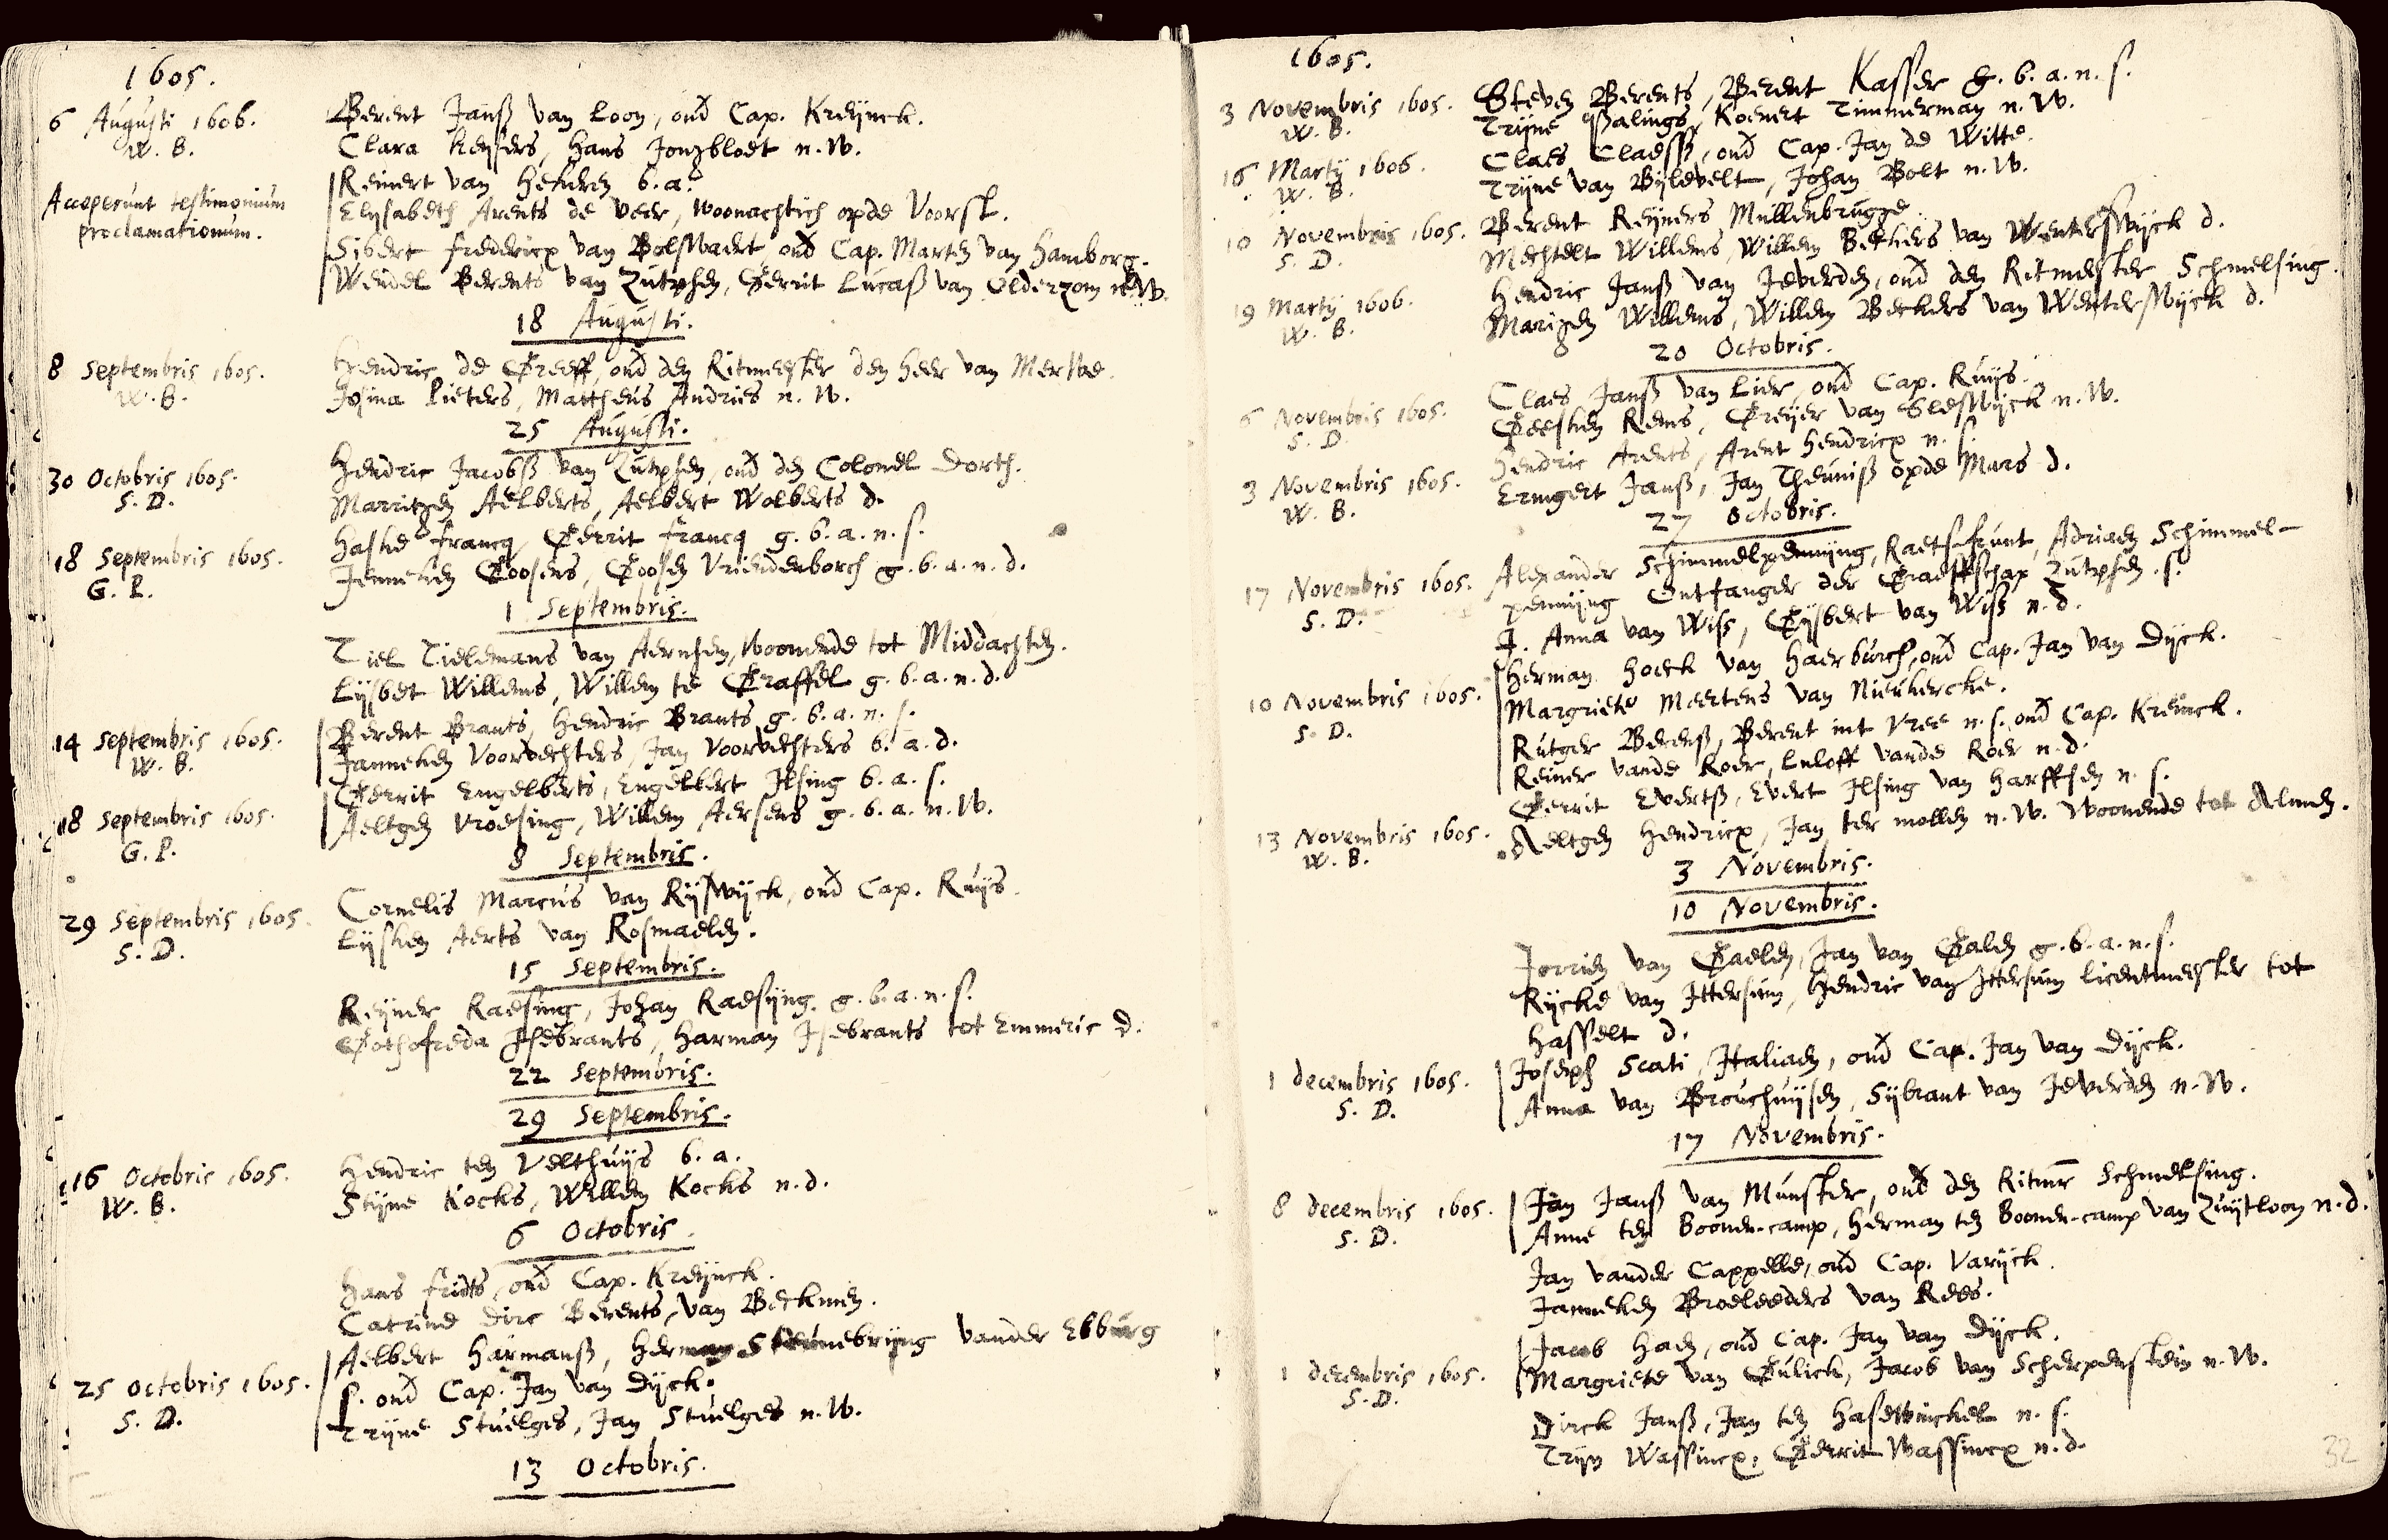 1605.
6 Augusti 1606.
W. B.
Berent Janß van Loon, ond Cap. Kreijnck.
Clara Keysers, Hans Jongbloet n. W.
Acceperunt testimonium
proclamationum.
Reinert van Hekeren b. a.
Elysabeth Arents de Veer, woonachtich opde Voorst.
Sibert Fredericx van Bolswaert, ond Cap. Marten van Hamborg.
Wendel Berents van Zutphen, Gerrit Lucaß van Olderzom n. W.
18 Augusti.
8 Septembris 1605.
W. B.
Hendric de Greeff, ond den Ritmeester den heer van Merwe.
Josina Pieters, Mattheus Andries n. W.
25 Augusti.
30 Octobris 1605.
S. D.
Hendric Jacobß van Zutphen, ond den Colonel Dorth.
Marritgen Aelberts, Aelbert Wolberts d.
18 Septembris 1605.
G. P.
Francq, Gerrit Francq g. b. a. n. s.
Jenneken Goosens, Goosen Vriendenborch g. b. a. n. d.
1 Septembris.
Tiel Tielemans van Aernhem, woonende tot Middachten.
Lijsbet Willems, Willem te Graffel g. b. a. n. d.
14 Septembris 1605.
W. B.
Berent Brants, Hendric Brants g. b. a. n. s.
Janneken Voorvechters, Jan Voorvechters b. a. d.
18 Septembris 1605.
G. P.
Gerrit Engelberts, Engelbert Ilsing b. a. s.
Aeltgen Vroesing, Willem Aersens g. b. a. n. W.
8 Septembris.
29 Septembris 1605.
S. D.
Cornelis Marcus van Rijswijck, ond Cap. Ruijs.
Lijsken Aerts van Rosmaelen.
15 Septembris.
Reijner Raesing, Johan Raesijng g. b. a. n. s.
Gothofreda Isebrants, Harman Isebrants tot Emmeric d.
22 Septembris.
29 Septembris.
16 Octobris 1605.
W. B.
Hendric ten Velthuijs b. a.
Stijne Kocks, Willem Kocks n. d.
6 Octobris
Hans Frids, ond Cap. Kreijnck.
Catrine Dirc Berents, van Beckmen.
25 Octobris 1605.
S. D.
Aelbert Harmanß, Herman vander Ebburg
s. ond Cap. Jan van Dijck.
Trijne Stuelges, Jan Stuelges n. W.
13 Octobris.
1605.
3 Novembris 1605.
W. B.
Steven Berents, Berent Kasser g. b. a. n. s.
Trijne Palings, Koenert Timmerman n. W.
16 Martij 1606.
W. B.
Claes Claesß, ond Cap. Jan de Witte.
Trijne van Bijlevelt, Johan Bolt n. W.
10 Novembris 1605.
S. D.
Berent Reijners Mullenbrugge
Mechtelt Willems, Willem Beckers van Winterswijck d.
19 Martij 1606.
W. B.
Hendric Janß van Jeverden, ond den Ritmeester Schmelsing.
Marigen Willems, Willem Beckers van Winterswijck d.
20 Octobris.
6 Novembris 1605.
S. D.
Claes Janß van Lier, ond Cap. Ruijs.
Geesken Rems, Greijer van Sleswijck n. W.
3 Novembris 1605.
W. B.
Hendric Arents, Arent Hendricx n. s.
Ermgert Janß, Jan Theuniß opde Mars d.
27 Octobris.
17 Novembris 1605.
S. D.
Alexander Schimmelpennijng, Raetsfrunt, Adriaen Schimmel-
pennijng Ontfanger der Graeffschap Zutphen s.
J. Anna van Wiss, Gijsbert van Wiß n. d.
10 Novembris 1605.
S. D.
Herman Hoeck van Haerburch, ond Cap. Jan van Dijck.
Margriete Meertens van Nieukercke.
Rutger Berenß, Berent int Vree n. s. ond Cap. Kreinck.
Reiner vande Roer, Luloff vande Roer n. d.
13 Novembris 1605.
W. B.
Gerrit Evertß, Evert Ilsing van Harffsen n. s.
Aeltgen Hendricx, Jan ter mollen n. W. woonende tot Almen.
3 Novembris.
10 Novembris.
Jorrien van Gaelen, Jan van Galen g. b. a. n. s.
Rijcke van Ittersum, Hendric van Ittersum licentmeester tot
Hasselt d.
1 decembris 1605.
S. D.
Joseph Scati, Italiaen, ond Cap. Jan van Dijck.
Anna van Brouchuijsen, Sijbrant van Jeverden n. W.
17 Novembris.
8 decembris 1605.
S. D.
Jan Janß van Munster, ond den Ritmr Schmelsing.
Anne ten Boonen-camp, Herman ten Boonen-camp van Zuijtloon n. d.
Jan vander Cappelle, ond Cap. Varijck.
Janneken Broeleeders van Rees.
1 decembris 1605.
S. D.
Jacob Haen, ond Cap. Jan van Dijck.
Margriete van Gulick, Jacob van Scherpenstein n. W.
Dirck Janß, Jan ten Hasewinckel n. s.
Trijn Wassincx, Gerrit Wassincx n. d.
32